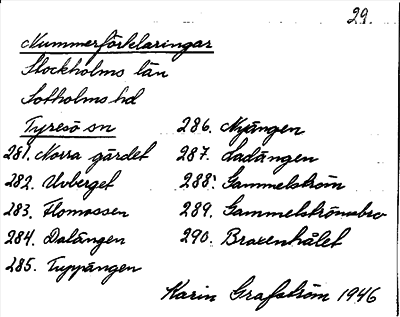 29.
Nummerförklaringar
Stockholms län
Sotholms hd
Tyresö sn
281. Norra gärdet
282. Uvberget
283. Flomossen
284. Dalängen
285. Tuppängen
286. Nyängen
287. Ladängen
288. Gammelström
289. Gammelströmsbro
290. Braxenhålet
Karin Grafström 1946